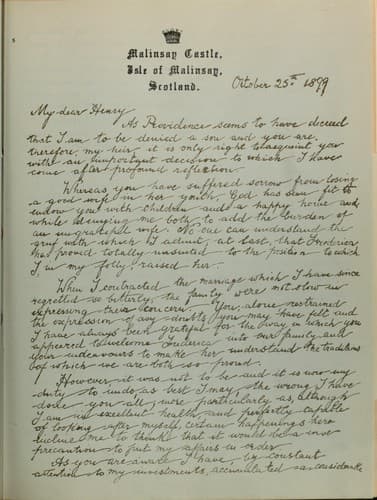 Malinsay Castle,
Isle of Malinsay,
Scotland.
October 25th 1899
My dear Henry
As Providence seems to have decreed
that I am to be denied a son and you are,
therefore, my heir, it is only right to acquaint you
with an important decision to which I have
come after profound reflection.
Whereas you have suffered sorrow from losing
a good wife in her youth, God has seen fit to
endow you with children and a happy home and,
while denying me both to add the burden of
an ungrateful wife. No one can understand the
grief with which I admit, at last, that Frederica
has proved totally unsuited to the position to which
I in my folly, raised her.
When I contracted the marriage which I have since
regretted so bitterly, the family were not slow in
expressing their concern. You, alone, restrained
the expression of any doubts you may have felt and
I have always been grateful for the way in which you
appeared to welcome Frederica into our family and
your endeavours to make her understand the traditions
of which we are both so proud.
However it was not to be and it is now my
duty to undo, as best I may, the wrong I have
done you all, more particularly as, although
I am in excellent health and perfectly capable
of looking after myself, certain happenings here
incline me to think that it would be a wise
precaution to put my affairs in order.
As you are aware I have, by constant
attention to my investments, accumulated a considerable